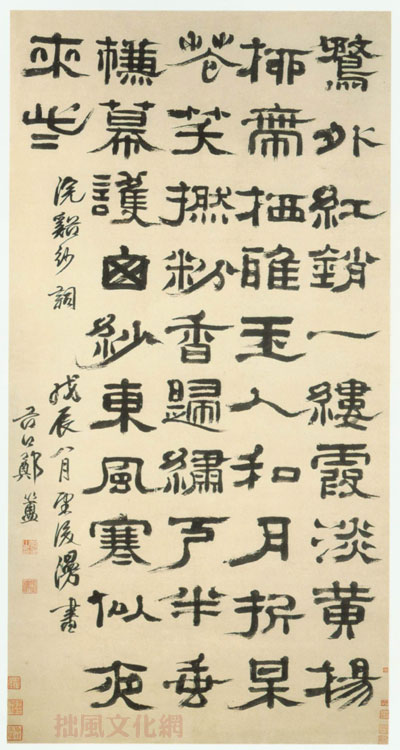 鶩外紅銷一縷霞淡黃揚
柳帶栖雅玉人和月折呆
花笑撚粉香歸繡戶半垂
槏幕護囪紗東風寒似夜
來些
浣谿紗詞 戊辰八月望後漫書
谷口鄭簠
拙風文化網